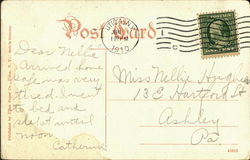 Post Card
UTICA, N.Y.
1910
Dear Nellie
Arrived home
safe was very
tired. I went
to bed and
slept until
noon
Catherine
Miss Nellie
13 E Hartford St
Ashley
Pa.